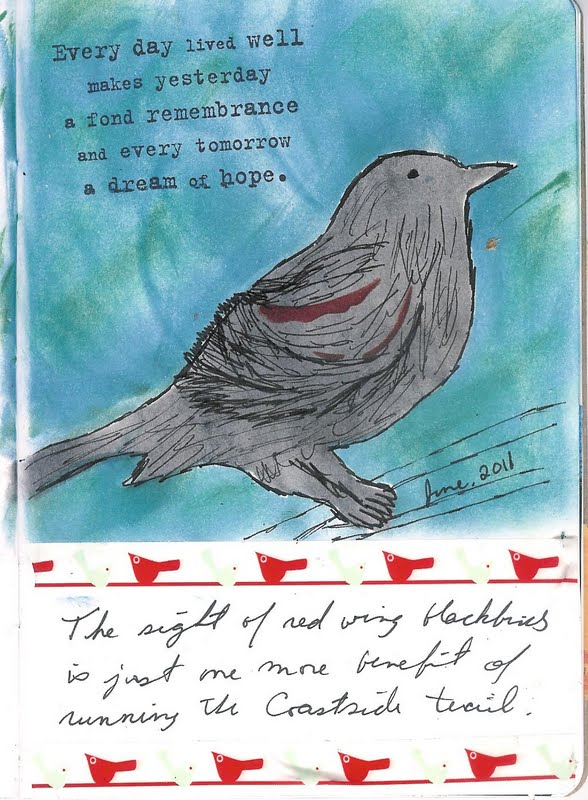 Every day lived well
makes yesterday
a fond remembrance
and every tomorrow
a dream of hope.
June. 2011
The sight of red wing blackbirds
is just one more benefit of
running the Coastside trail.